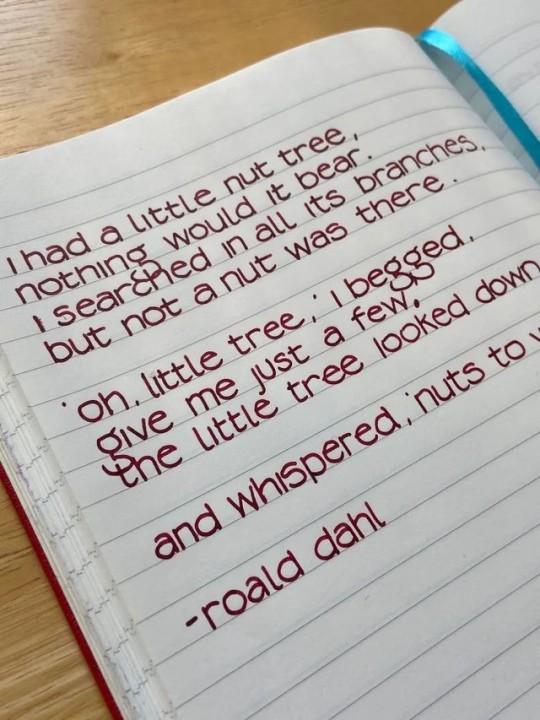 I had a little nut tree,
nothing would it bear.
I searched in all its branches,
but not a nut was there.
'Oh, little tree,' I begged,
give me just a few.
the little tree looked down
and whispered, 'nuts to
-roald dahl